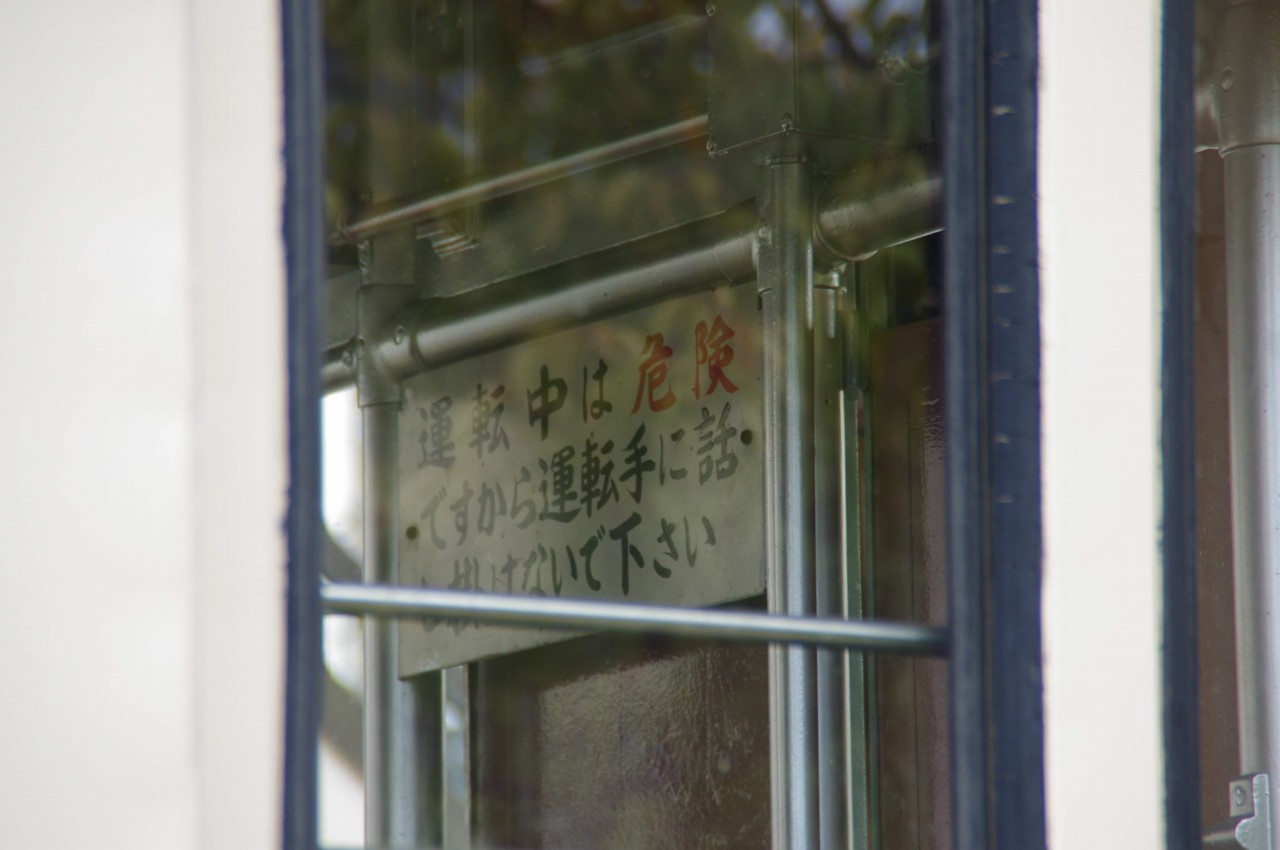 運転中は危険
ですから運転手に話
し掛けないで下さい